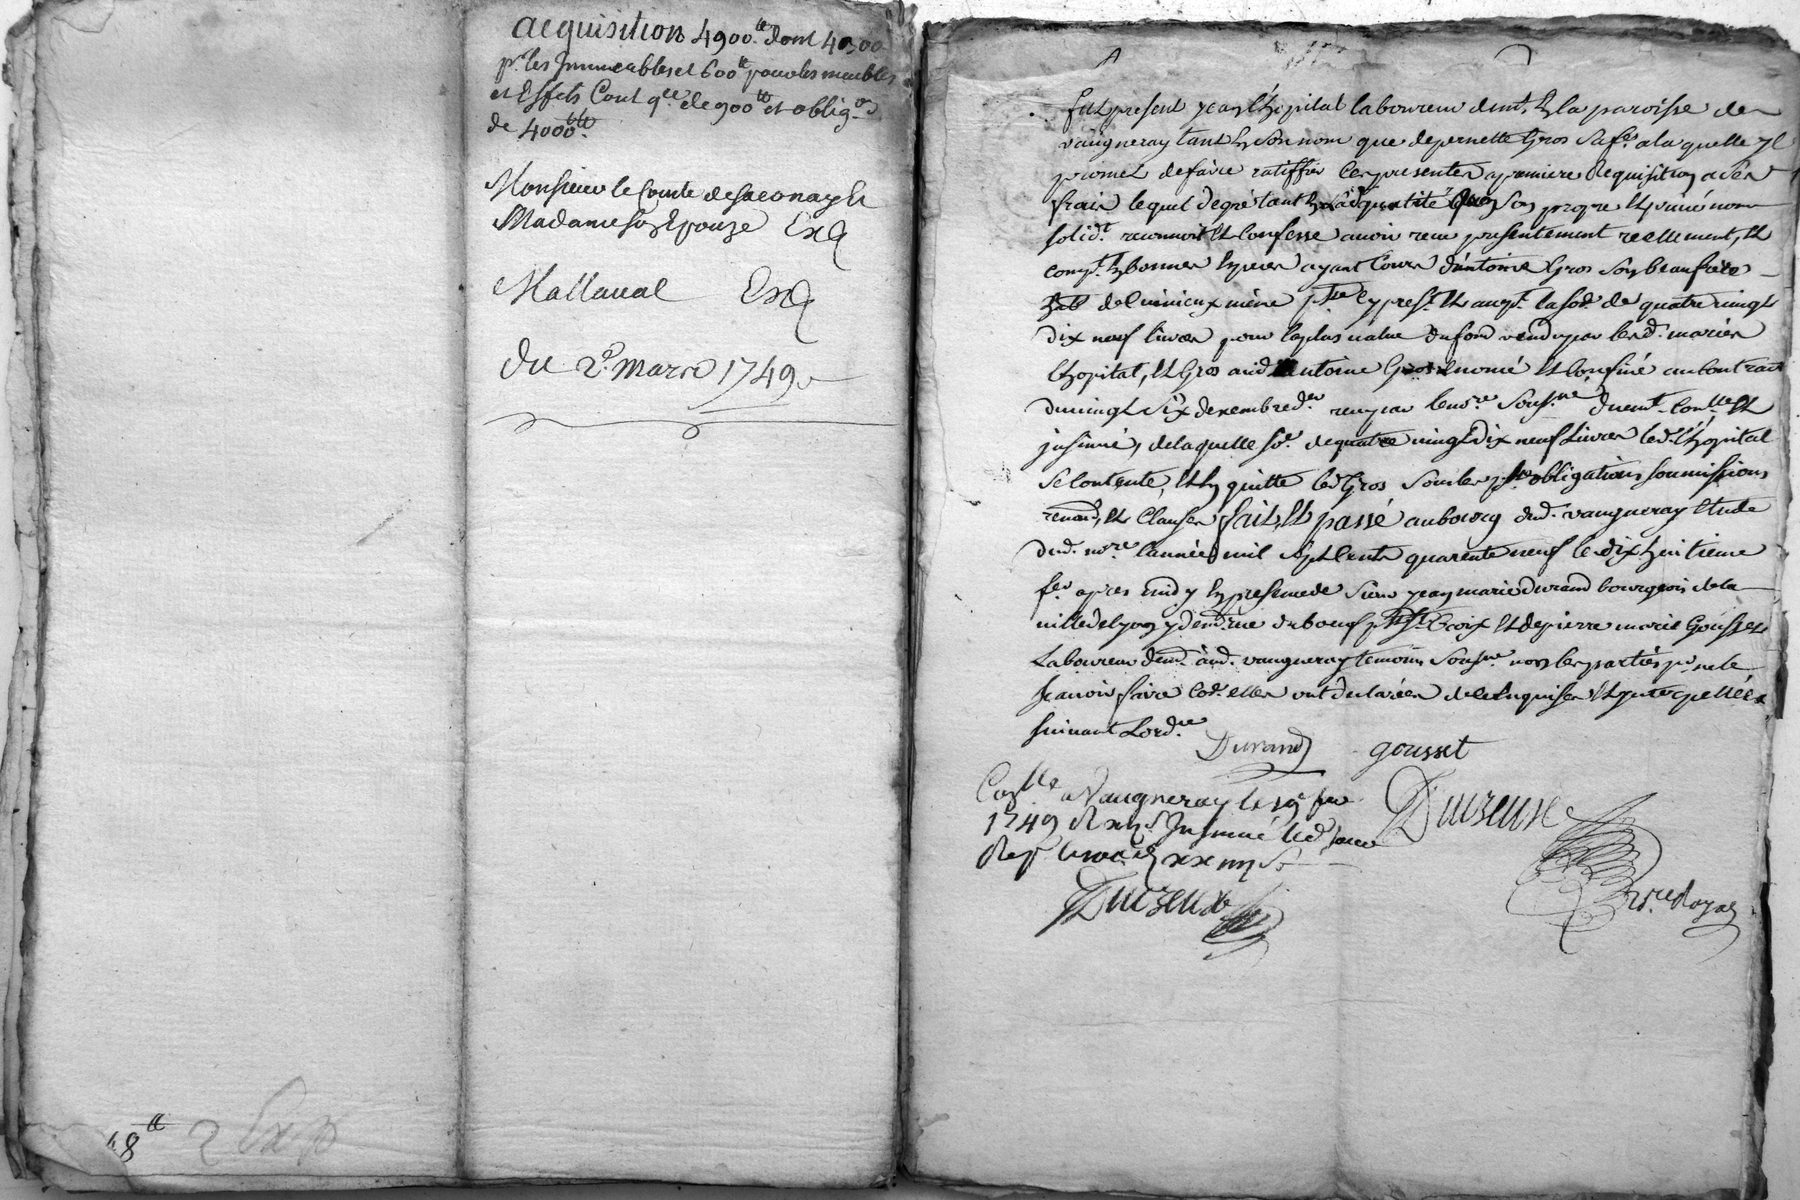 acquisition 4900.tt dont 4300
pr. les Immeubles et 600tt pour les meubles
et Effets Cont qce. de 900tt et oblig.on
de 4000tt.
Monsieur le Comte de saconay &
Madame son Epouze Exp
Mallaval Exp
du 2e. Mars 1749
18tt 2 Exp
fut present jean lhopital laboureur demt. En la paroisse de
vaugneray tant En son nom que de pernette Gros sa fe. a la quelle yl
promet de faire ratiffier les presentes a premiere Requisition a ses
frais lequel de gré tant En sad. qualité quen son propre Et privé nom
solidt. reconnoit Et confesse avoir receu presentement reellement, Et
compt. En bonnes Especes ayant cours d'antoine Gros son beaufrere
hab. de meme psse. cy prest. Et acupt. la some. de quatre vingt
dix neuf livres pour la plus value du fond vendu par lesd. mariés
lhopital, Et Gros aud. antoine Gros nomé Et confiné au contrat
du vingt Six decembre der. receu par le nore. Sousné. duemt. conllé Et
insinué, de laquelle se. de quatre vingt dix neuf Livres led. lhopital
se contente, Et En quitte led. Gros sous les pses. obligations soumissions
renons. Et clauses fait, Et passé au bourg dud. vaugneray Etude
dud. nore. l'année mil sept cents quarente neuf le dix huitieme
fer. apres midy En presence de sieur jean marie durand bourgeois de la
ville de lyon y demt. rue du boeuf psse. Ste. Croix Et de pierre marie Gousset
Laboureur demt. aud. vaugneray temoins sousnés. non les parties pr. ne le
scavoir faire come. elles ont declaré de ce Enquises Et
suivant Lorde.
Durand gousset
Conllé a Vaugneray le 19e fer
1749 Insinué led. jour
Rept.
Duizeux
Duizeux
nre. Royal